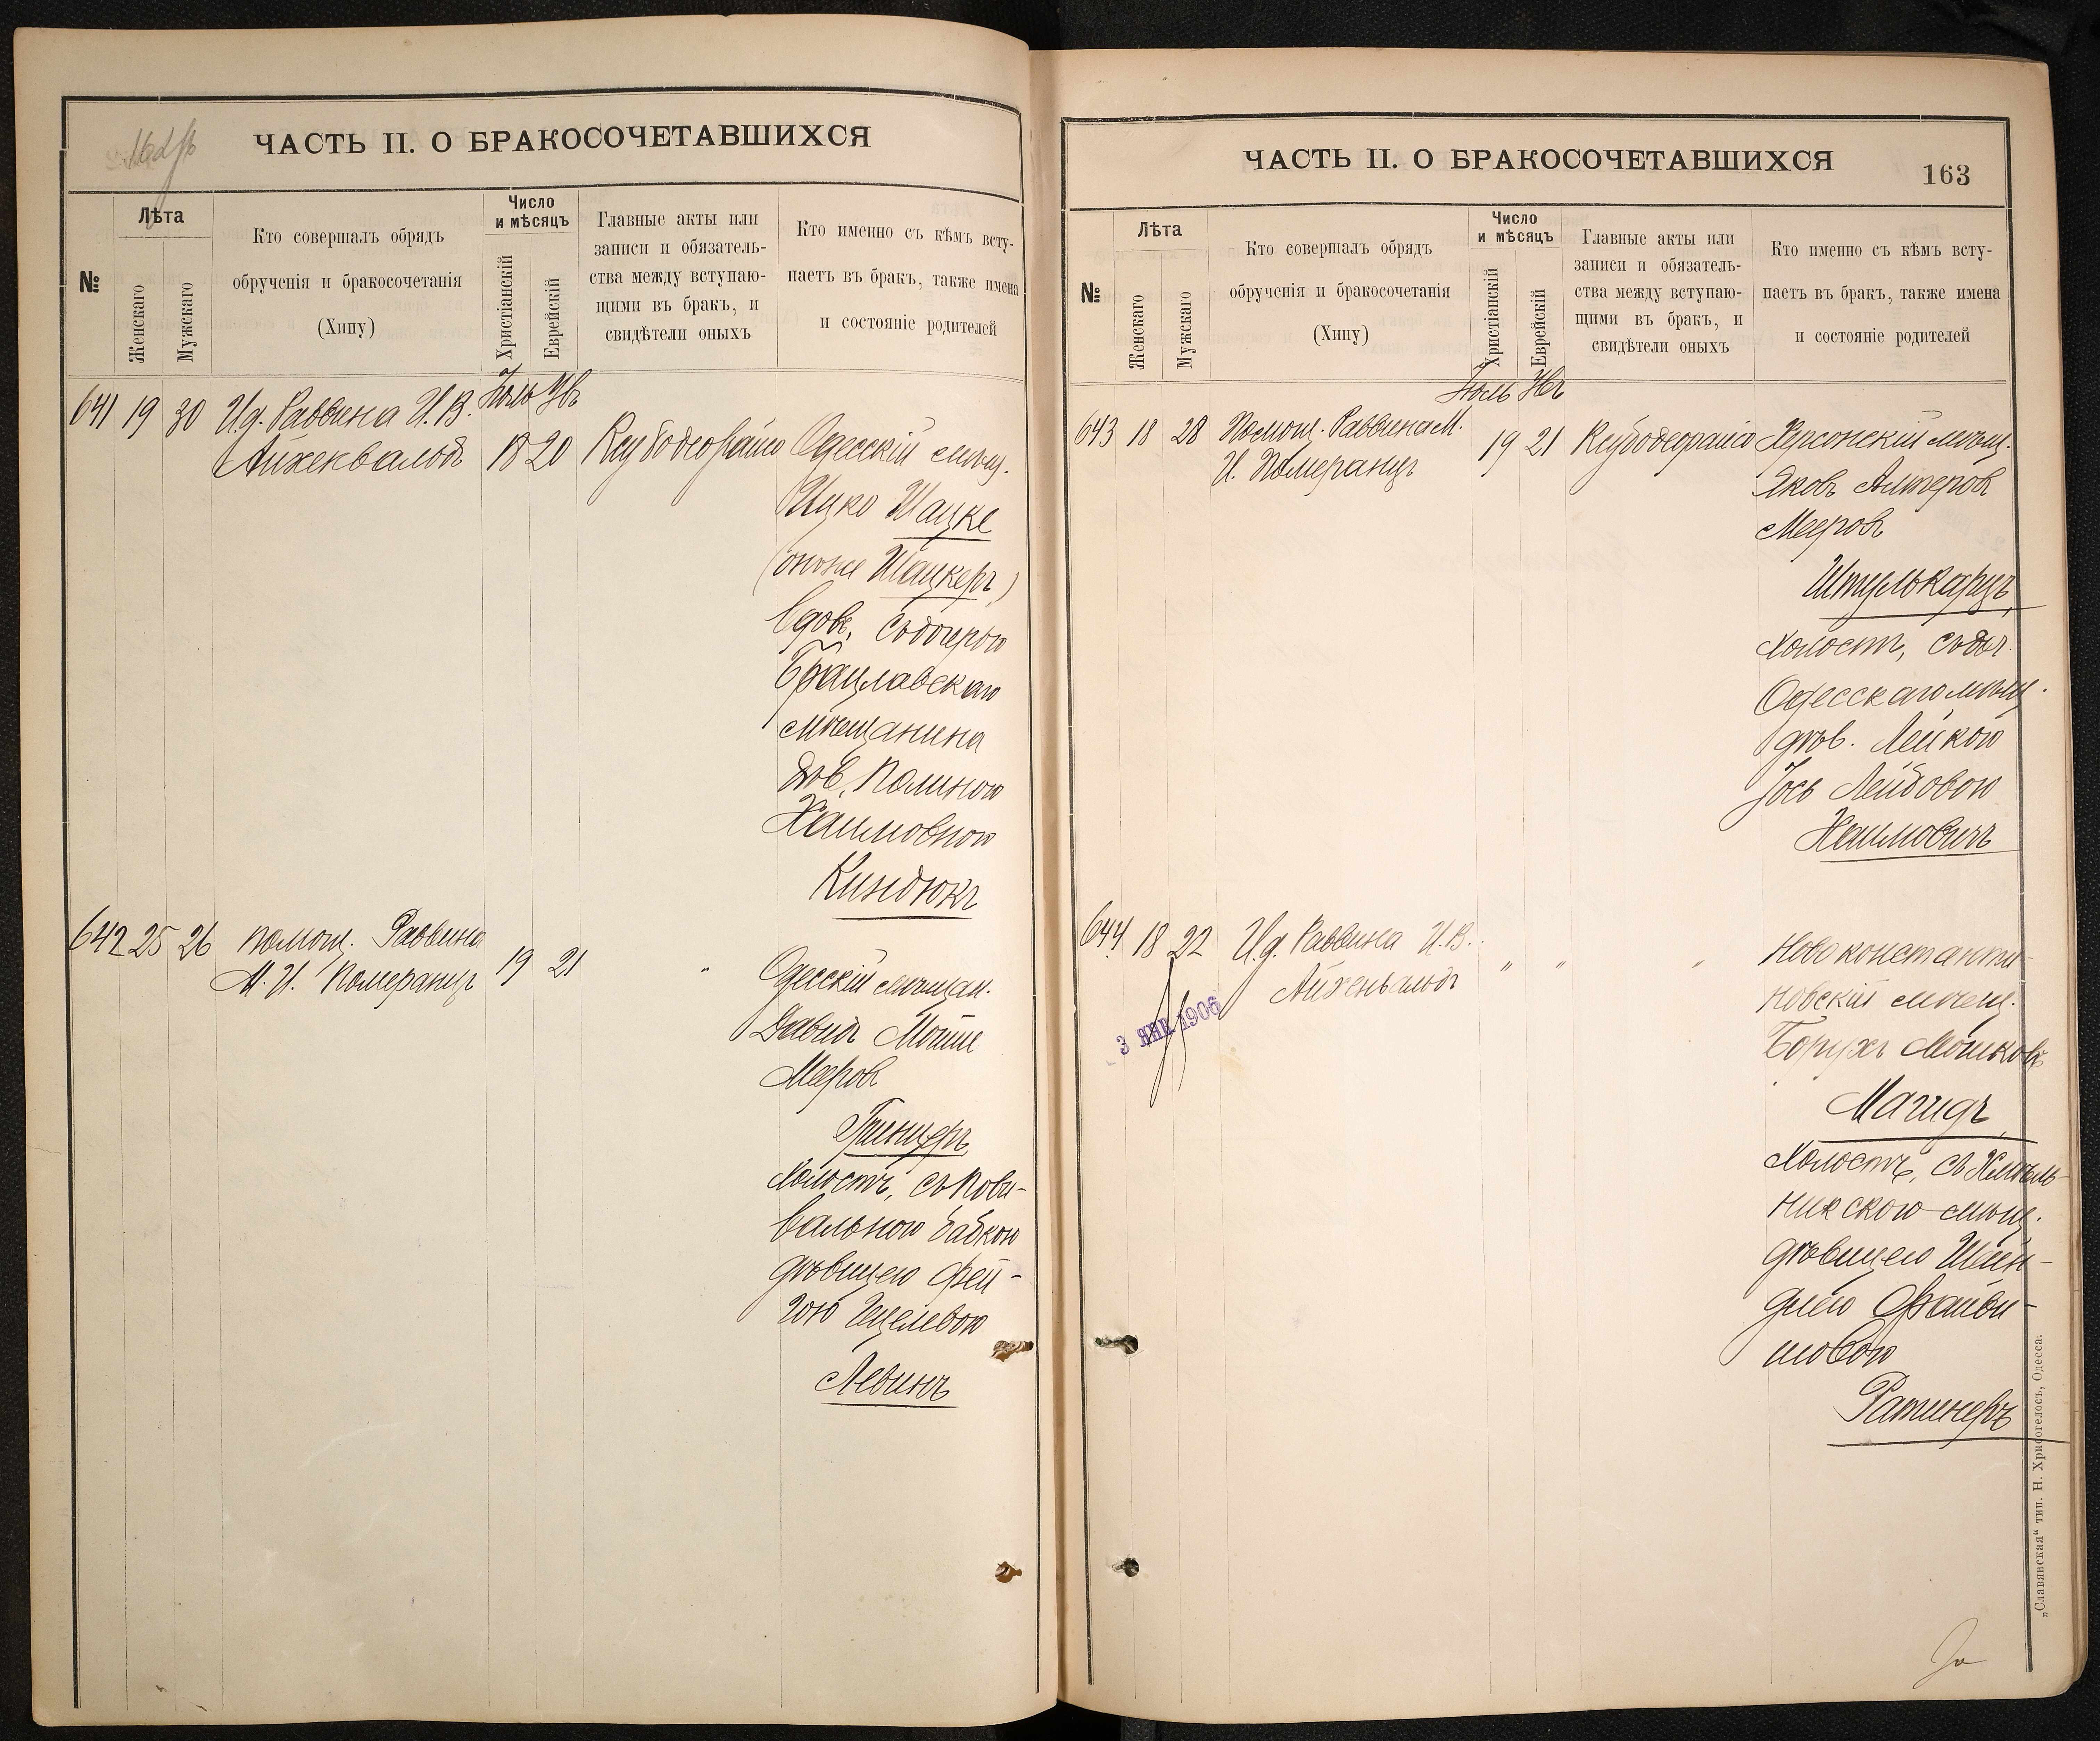 ЧАСТЬ II. О БРАКОСОЧЕТАВШИХСЯ
№
Лѣта
Женскаго
Мужскаго
Кто совершалъ обрядъ
обрученія и бракосочетанія
(Хипу)
Число
и мѣсяцъ
Христіанскій
Еврейскій
Главные акты или
записи и обязатель-
ства между вступаю-
щими въ бракъ, и
свидѣтели оныхъ
Кто именно съ кѣмъ всту-
паетъ въ бракъ, также имена
и состояніе родителей
Іюль
641 19 30 И.д. Раввина И.В.
Айхенвальдъ 18 20
Одесскій мѣщ.
Ицко Шацке
(онъже Шацкеръ)
вдов., съ дочерью
Брацлавскаго
мѣщанина
дѣв. Полиною
Хаимовною
Киндюкъ
642 25 26 помощ. Раввина
М. И. Померанцъ 19 21 "
Одесскій мѣщан.
Давидъ Мойше
Мееров
Гринцеръ
холостъ, съ пови-
вальною бабкою
дѣвицею Фей-
гою Гецелевою
Левинъ
ЧАСТЬ II. О БРАКОСОЧЕТАВШИХСЯ
163
№
Лѣта
Женскаго
Мужскаго
Кто совершалъ обрядъ
обрученія и бракосочетанія
(Хипу)
Число
и мѣсяцъ
Христіанскій
Еврейскій
Главные акты или
записи и обязатель-
ства между вступаю-
щими въ бракъ, и
свидѣтели оныхъ
Кто именно съ кѣмъ всту-
паетъ въ бракъ, также имена
и состояніе родителей
Іюль
643 18 28 Помощ. Раввина М.
И. Померанцъ 19 21
Херсонскій мѣщ.
Яковъ Алтеров
Мееров
Штулькарцъ,
холостъ, съ доч.
Одесскаго мѣщ.
дѣв. Лейкою
Іось Лейбовою
Хаимовичъ
644 18 22 И.д. Раввина И.В.
Айхенвальдъ " " "
Новоконстанти-
новскій мѣщ.
Борухъ Мошковъ
Магидъ,
холостъ, съ Хмѣль-
никскою мѣщ.
дѣвицею Шейн-
длею Файви-
шовою
Ратинеръ
3 ЯНВ 1906
„Славянская“ тип. Н. Хрисогелосъ, Одесса.